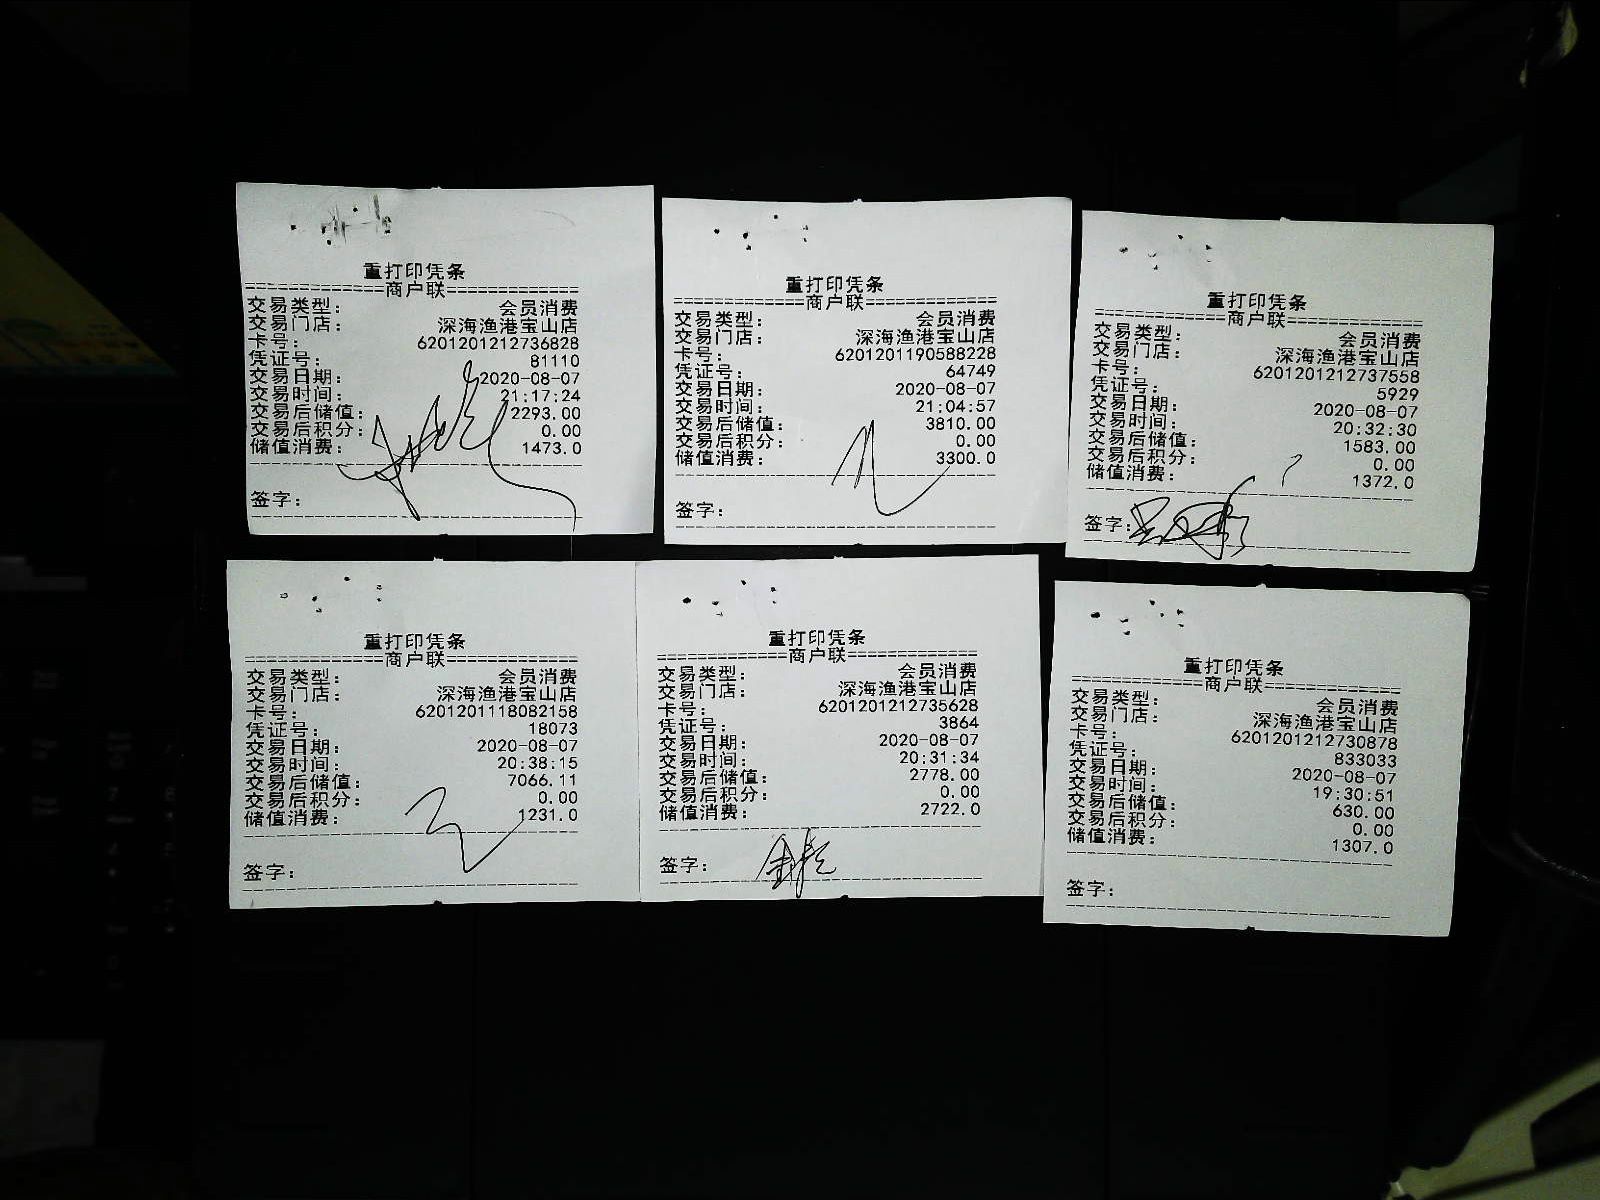 重打印凭条
==============商户联==============
交易类型： 会员消费
交易门店： 深海渔港宝山店
卡号： 6201201212736828
凭证号： 81110
交易日期： 2020-08-07
交易时间： 21:17:24
交易后储值： 2293.00
交易后积分： 0.00
储值消费： 1473.0
签字：
重打印凭条
==============商户联==============
交易类型： 会员消费
交易门店： 深海渔港宝山店
卡号： 6201201190588228
凭证号： 64749
交易日期： 2020-08-07
交易时间： 21:04:57
交易后储值： 3810.00
交易后积分： 0.00
储值消费： 3300.0
签字：
重打印凭条
==============商户联==============
交易类型： 会员消费
交易门店： 深海渔港宝山店
卡号： 6201201212737558
凭证号： 5929
交易日期： 2020-08-07
交易时间： 20:32:30
交易后储值： 1583.00
交易后积分： 0.00
储值消费： 1372.0
签字：
重打印凭条
==============商户联==============
交易类型： 会员消费
交易门店： 深海渔港宝山店
卡号： 6201201118082158
凭证号： 18073
交易日期： 2020-08-07
交易时间： 20:38:15
交易后储值： 7066.11
交易后积分： 0.00
储值消费： 1231.0
签字：
重打印凭条
==============商户联==============
交易类型： 会员消费
交易门店： 深海渔港宝山店
卡号： 6201201212735628
凭证号： 3864
交易日期： 2020-08-07
交易时间： 20:31:34
交易后储值： 2778.00
交易后积分： 0.00
储值消费： 2722.0
签字：
重打印凭条
==============商户联==============
交易类型： 会员消费
交易门店： 深海渔港宝山店
卡号： 6201201212730878
凭证号： 833033
交易日期： 2020-08-07
交易时间： 19:30:51
交易后储值： 630.00
交易后积分： 0.00
储值消费： 1307.0
签字：